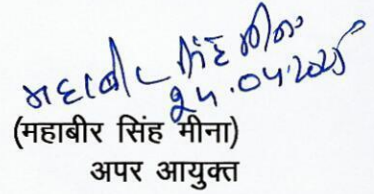 महाबीर सिंह मीना
24.04.2025
(महाबीर सिंह मीना)
अपर आयुक्त